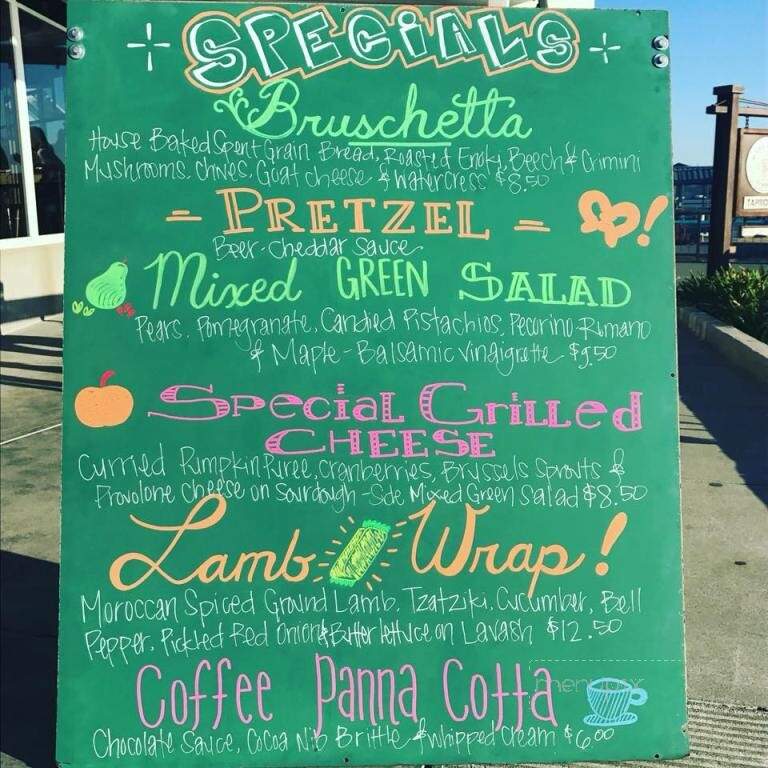 SPECiALS
Bruschetta
House Baked Spent Grain Bread, Roasted Enoky, Beech & Crimini
Mushrooms, Chives, Goat Cheese & Watercress $8.50
- PRETZEL - !
Beer-Cheddar Sauce
Mixed GREEN SALAD
Pears, Pomegranate, Candied Pistachios, Pecorino-Romano
& Maple-Balsamic Vinaigrette $9.50
Special Grilled
CHEESE
Curried Pumpkin Puree, Cranberries, Brussels Sprouts &
Provolone Cheese on Sourdough - Side Mixed Green Salad $8.50
Lamb Wrap!
Moroccan Spiced Ground Lamb, Tzatziki, Cucumber, Bell
Pepper, Pickled Red Onion & Butter lettuce on Lavash $12.50
Coffee Panna Cotta
Chocolate Sauce, Cocoa Nib Brittle & Whipped Cream $6.00
menupix